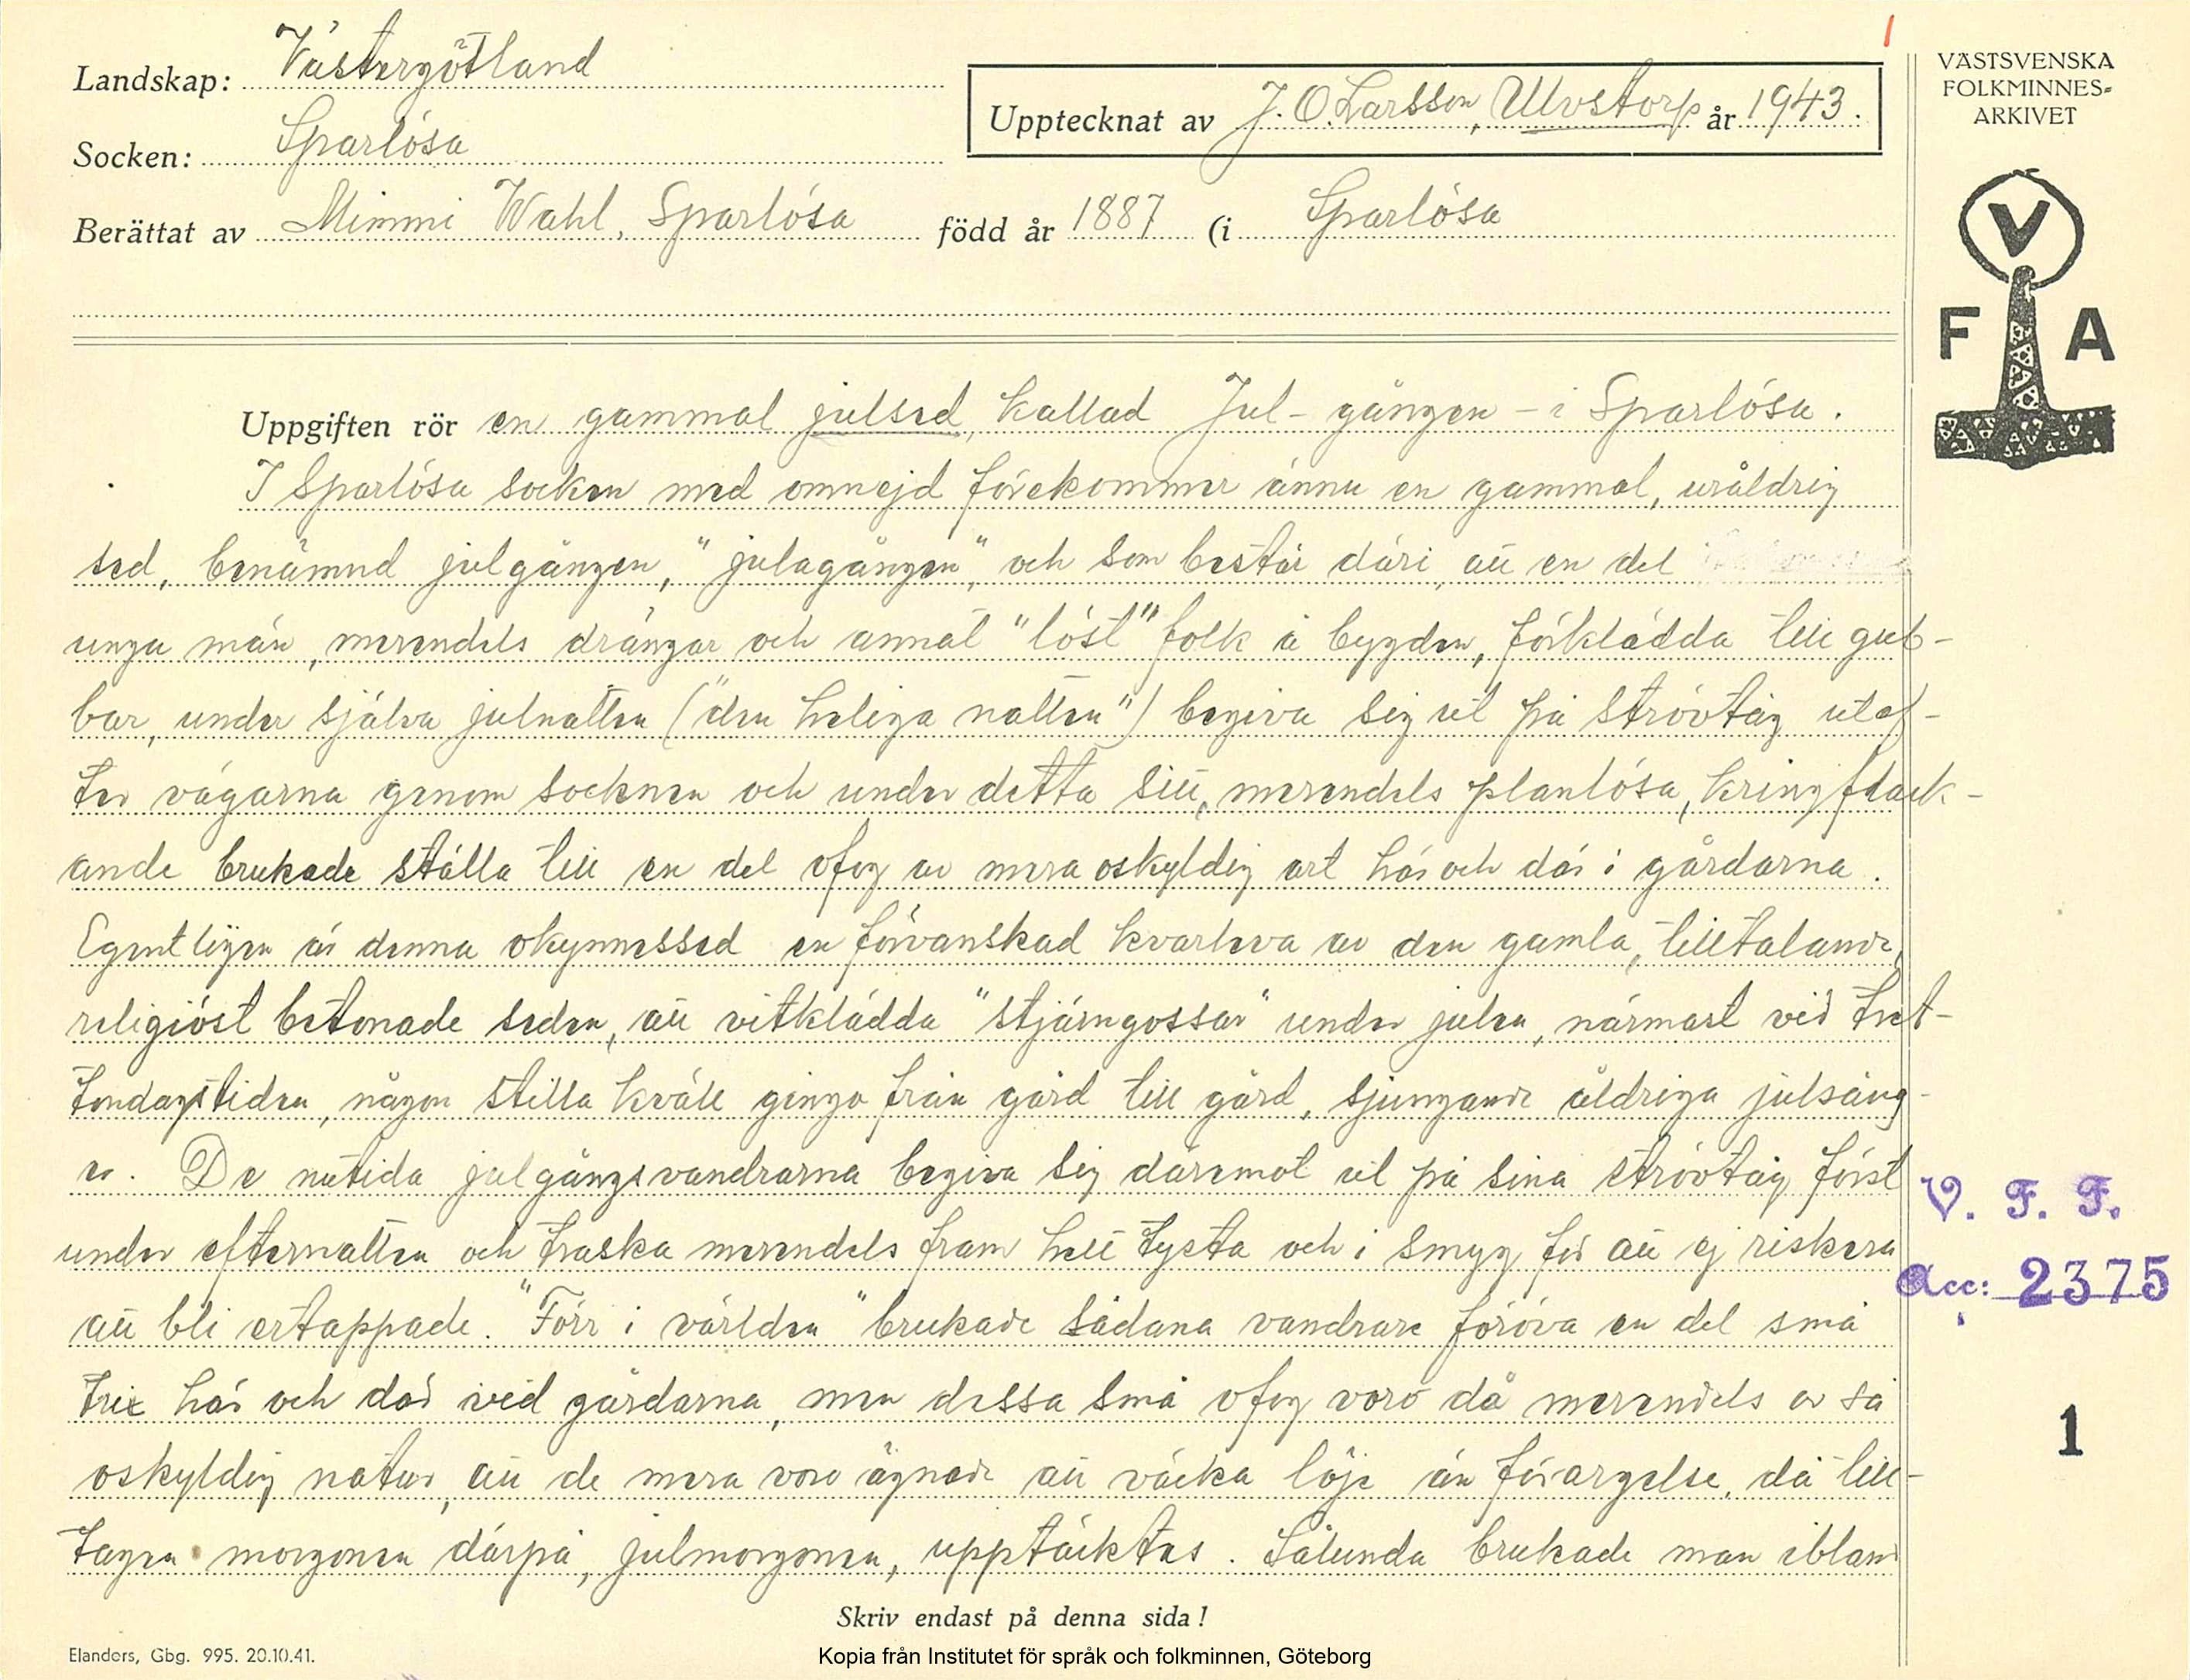 1
Landskap: Västergötland
Socken: Sparlösa
Berättat av Mimmi Wahl, Sparlösa född år 1887 (i Sparlösa
Upptecknat av J. O. Larsson, Ulvstorp år 1943.
VÄSTSVENSKA
FOLKMINNES-
ARKIVET
V
F A
Uppgiften rör en gammal julsed, kallad Jul-gången - i Sparlösa.
I Sparlösa socken med omnejd förekommer ännu en gammal, uråldrig
sed, benämnd julgången, "julagången", och som består däri, att en del
unga män, merendels drängar och annat "löst" folk i bygden, förklädda till gub-
bar, under själva julnatten ("den heliga natten") begiva sig ut på strövtåg utef-
ter vägarna genom socknen och under detta sitt, merendels planlösa, kringflack-
ande brukade ställa till en del ofog av mera oskyldig art här och där i gårdarna.
Egentligen är denna okynnessed en förvanskad kvarleva av den gamla, tilltalande,
religiöst betonade seden, att vitklädda "stjärngossar" under julen, närmast vid tret-
tondagstiden, någon stilla kväll gingo från gård till gård, sjungande åldriga julsång-
er. De nutida julgångsvandrarna begiva sig däremot ut på sina strövtåg först
under efternatten och traska merendels fram helt tysta och i smyg för att ej riskera
att bli ertappade. "Förr i världen" brukade sådana vandrare föröva en del små
trix här och där vid gårdarna, men dessa små ofog voro då merendels av så
oskyldig natur, att de mera voro ägnade att väcka löje än förargelse, då till-
tagen morgonen därpå, julmorgonen, upptäcktes. Sålunda brukade man ibland
V. F. F.
Acc: 2375
1
Skriv endast på denna sida!
Elanders, Gbg. 995. 20.10.41.
Kopia från Institutet för språk och folkminnen, Göteborg